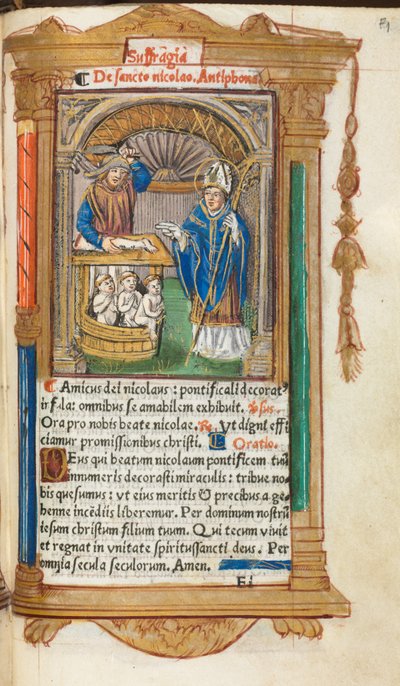 Suffragia
De sancto nicolao. Antiphona
Amicus dei nicolaus: pontificali decorat⁹
īfula: omnibus se amabilem exhibuit. ℣sus.
Ora pro nobis beate nicolae. ℟. Vt digni effi
ciamur promissionibus christi. Oratio.
DEus qui beatum nicolaum pontificem tuū
innumeris decorasti miraculis: tribue no
bis quesumus: vt eius meritis & precibus a ge
henne incēdiis liberemur. Per dominum nostrū
iesum christum filium tuum. Qui tecum viuit
et regnat in vnitate spiritussancti deus. Per
omnia secula seculorum. Amen.